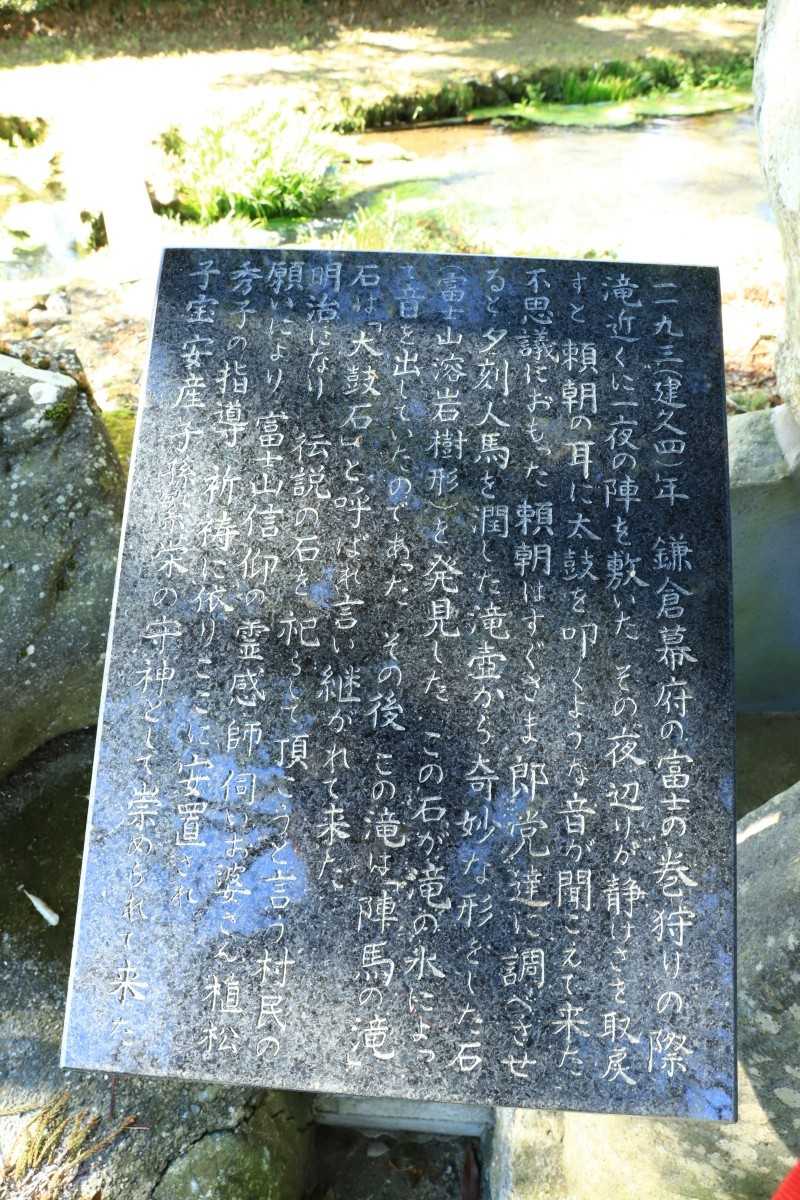 一一九三(建久四)年 鎌倉幕府の富士の巻狩りの際
滝近くに一夜の陣を敷いた その夜辺りが静けさを取戻
すと 頼朝の耳に太鼓を叩くような音が聞こえて来た
不思議におもった頼朝はすぐさま郎党達に調べさせ
ると夕刻人馬を潤した滝壷から奇妙な形をした石
(富士山溶岩樹形)を発見した この石が滝の水によっ
て音を出していたのであった その後 この滝は「陣馬の滝」
石は「太鼓石」と呼ばれ言い継がれて来た
明治になり 伝説の石を祀らして頂こうと言う村民の
願いにより 富士山信仰の霊感師 伺いお婆さん植松
秀子の指導 祈祷に依りここに安置され
子宝安産子孫繁栄の守神として崇められて来た